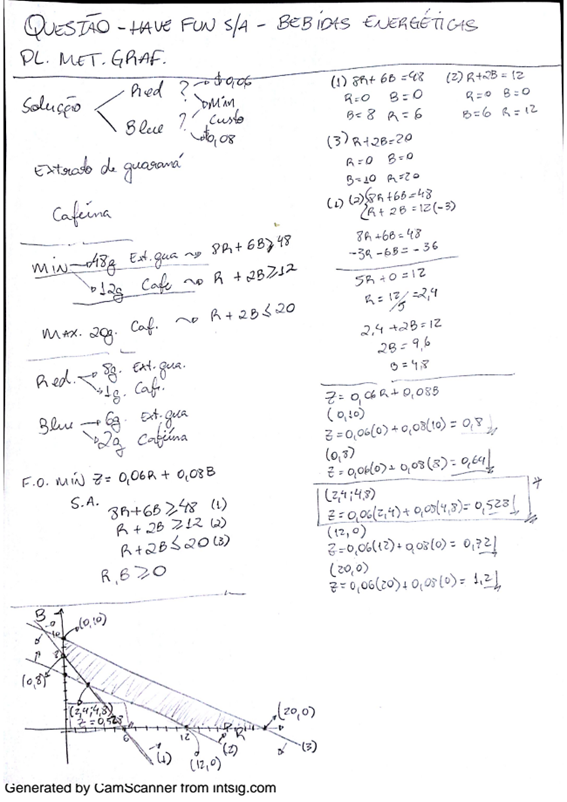 QUESTÃO - HAVE FUN S/A - BEBIDAS ENERGÉTICAS
PL. MET. GRAF.
Solução
Red ? $0,06
Min Custo
Blue ? $0,08
Extrato de guaraná
Cafeína
MIN 48g Ext. gua 8R + 6B ≥ 48
12g Cafe R + 2B ≥ 12
MAX. 20g. Caf. R + 2B ≤ 20
Red. 8g. Ext. gua.
1g. Caf.
Blue 6g. Ext. gua
2g Cafeína
F.O. MIN Z = 0,06R + 0,08B
S.A.
8R + 6B ≥ 48 (1)
R + 2B ≥ 12 (2)
R + 2B ≤ 20 (3)
R, B ≥ 0
(1) 8R + 6B = 48 (2) R + 2B = 12
R = 0 B = 0 R = 0 B = 0
B = 8 R = 6 B = 6 R = 12
(3) R + 2B = 20
R = 0 B = 0
B = 10 R = 20
(1) (2) 8R + 6B = 48
R + 2B = 12 (-3)
8R + 6B = 48
-3R - 6B = -36
5R + 0 = 12
R = 12/5 = 2,4
2,4 + 2B = 12
2B = 9,6
B = 4,8
Z = 0,06R + 0,08B
(0,10)
Z = 0,06(0) + 0,08(10) = 0,8
(0,8)
Z = 0,06(0) + 0,08(8) = 0,64
(2,4; 4,8) *
Z = 0,06(2,4) + 0,08(4,8) = 0,528
(12,0)
Z = 0,06(12) + 0,08(0) = 0,72
(20,0)
Z = 0,06(20) + 0,08(0) = 1,2
B
10
(0,10)
8
(0,8)
(2,4; 4,8)
Z = 0,528
6
12
R
(20,0)
(1)
(12,0)
(2)
(3)
Generated by CamScanner from intsig.com